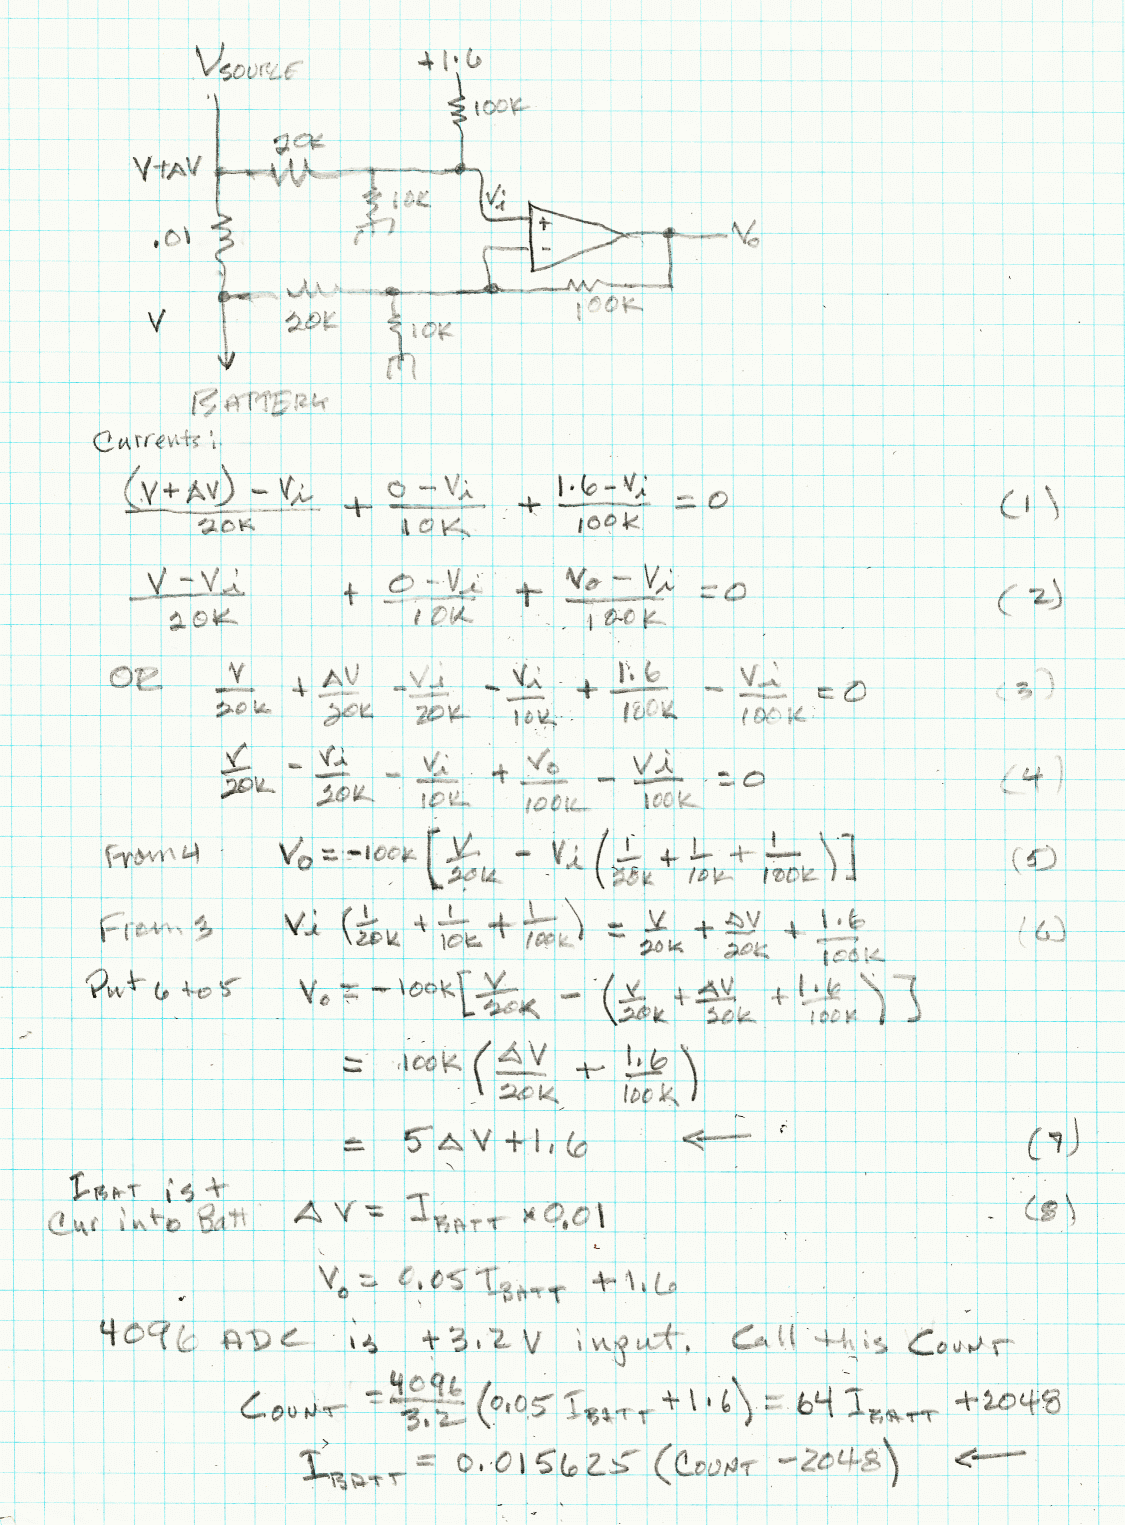 VSOURCE
+1.6
100K
20K
V+ΔV
10K
Vi
+
-
Vo
.01
100K
20K
10K
V
BATTERY
Currents:
((V+ΔV) - Vi)/20K + (0 - Vi)/10K + (1.6 - Vi)/100K = 0 (1)
(V - Vi)/20K + (0 - Vi)/10K + (Vo - Vi)/100K = 0 (2)
OR V/20K + ΔV/20K - Vi/20K - Vi/10K + 1.6/100K - Vi/100K = 0 (3)
V/20K - Vi/20K - Vi/10K + Vo/100K - Vi/100K = 0 (4)
From 4 Vo = -100K [V/20K - Vi (1/20K + 1/10K + 1/100K)] (5)
From 3 Vi (1/20K + 1/10K + 1/100K) = V/20K + ΔV/20K + 1.6/100K (6)
Put 6 to 5 Vo = -100K [V/20K - (V/20K + ΔV/20K + 1.6/100K)]
= 100K (ΔV/20K + 1.6/100K)
= 5ΔV + 1.6 ← (7)
IBAT is +
Cur into Batt ΔV = IBATT × 0.01 (8)
Vo = 0.05 IBATT + 1.6
4096 ADC is +3.2V input. Call this COUNT
COUNT = 4096/3.2 (0.05 IBATT + 1.6) = 64 IBATT + 2048
IBATT = 0.015625 (COUNT - 2048) ←